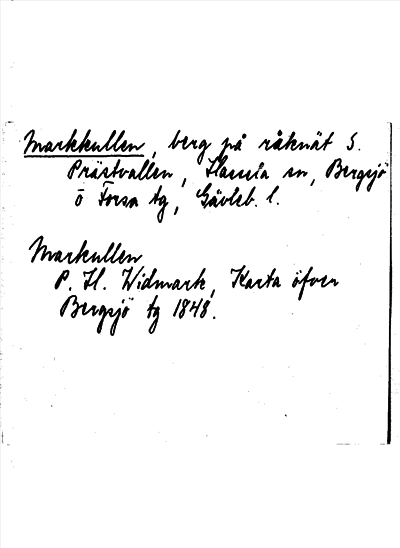 Markkullen, berg på råknät S.
Prästvallen, Hassela sn, Bergsjö
o Forsa tg, Gävleb. l.
Markullen
P. H. Widmark, Karta öfver
Bergsjö tg 1848.